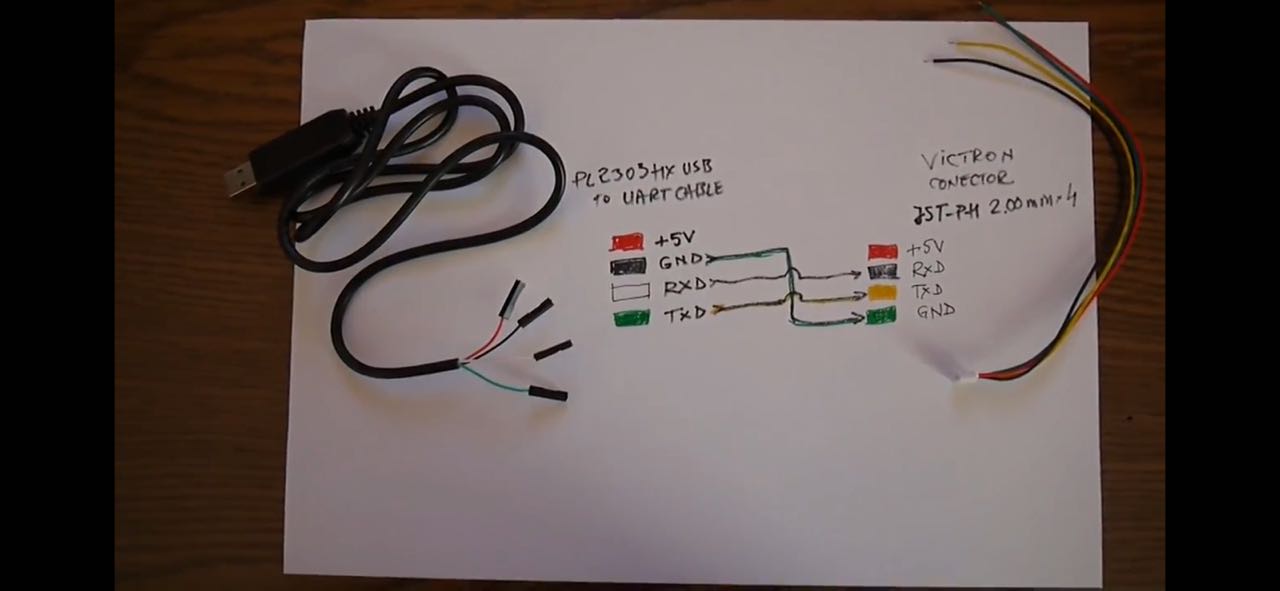 PL2303HX USB
TO UART CABLE
+5V
GND
RXD
TXD
VICTRON
CONECTOR
JST-PH 2.00mm×4
+5V
RXD
TXD
GND